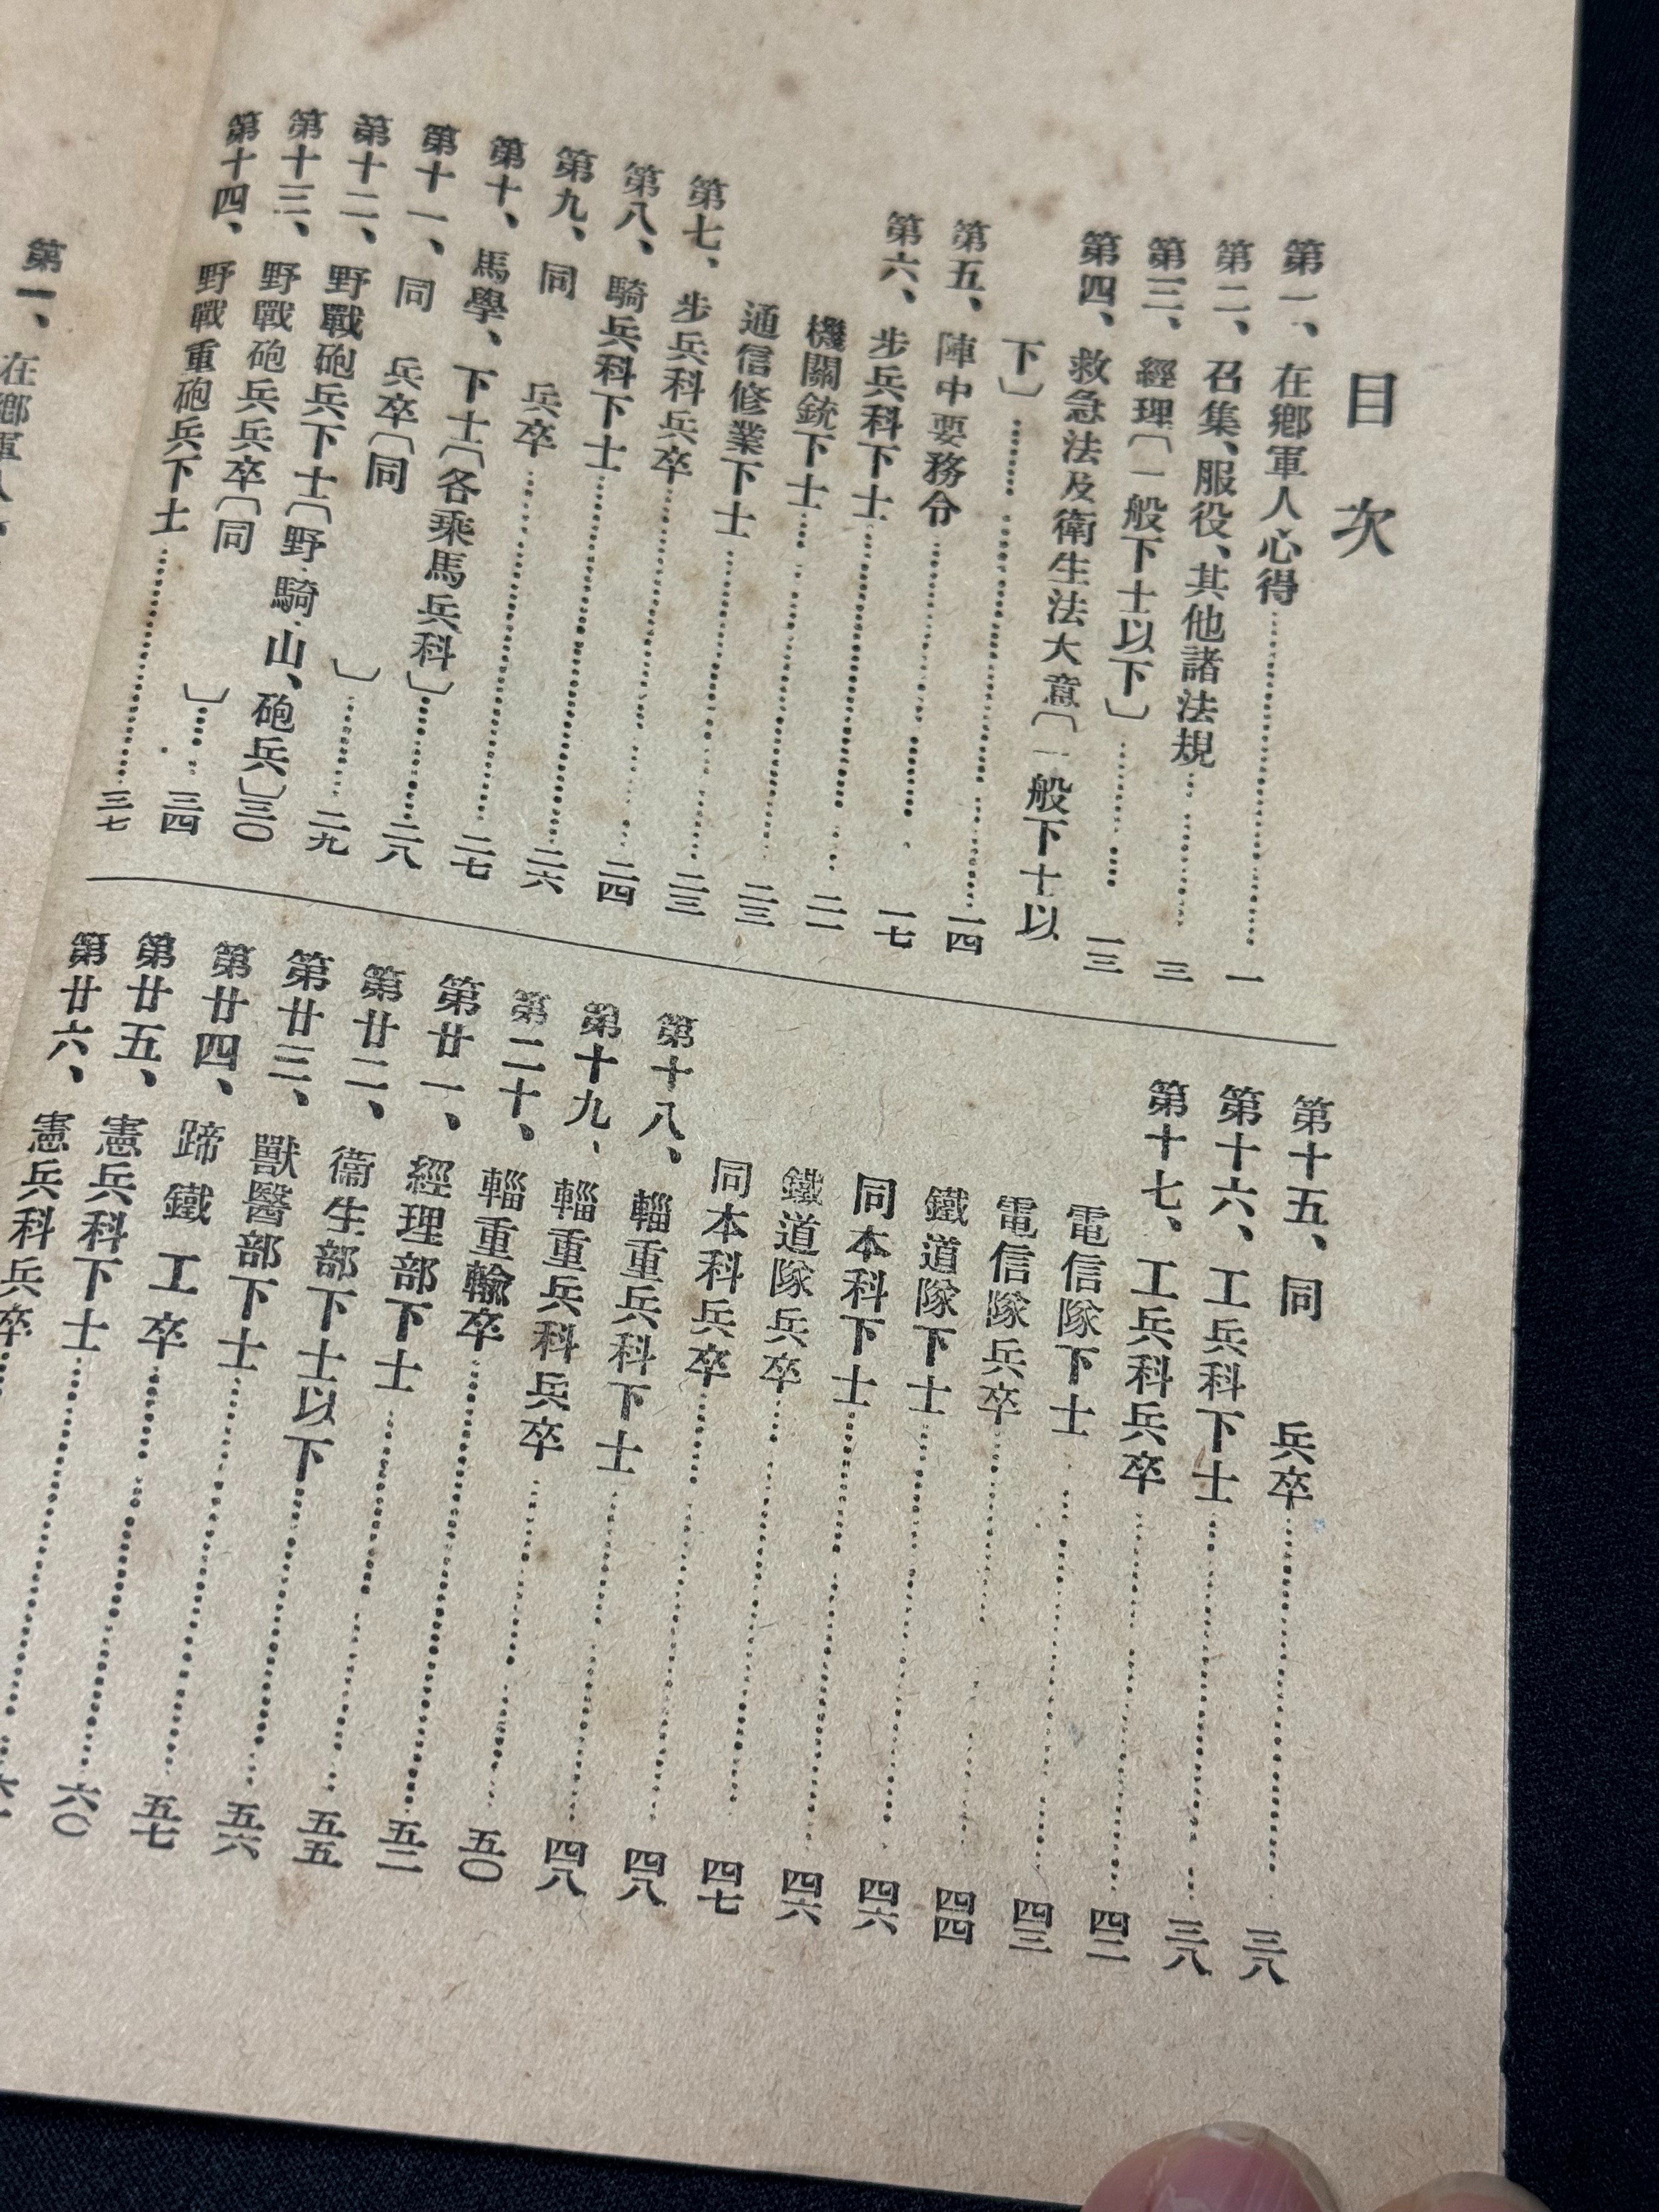 目次
第一、在鄕軍人心得………………一
第二、召集、服役、其他諸法規………三
第三、經理〔一般下士以下〕………一三
第四、救急法及衛生法大意〔一般下士以
下〕………………一四
第五、陣中要務令………………一七
第六、步兵科下士………………二一
機關銃下士………………二三
通信修業下士………………二三
第七、步兵科兵卒………………二四
第八、騎兵科下士………………二六
第九、同　兵卒………………二七
第十、馬學、下士〔各乘馬兵科〕………二八
第十一、同　兵卒〔同　〕………二九
第十二、野戰砲兵下士〔野、騎、山、砲兵〕三〇
第十三、野戰砲兵兵卒〔同　〕………三四
第十四、野戰重砲兵下士………………三七
第十五、同　兵卒………………三八
第十六、工兵科下士………………三八
第十七、工兵科兵卒………………四二
電信隊下士………………四三
電信隊兵卒………………四四
鐵道隊下士………………四六
同本科下士………………四六
鐵道隊兵卒………………四七
同本科兵卒………………四八
第十八、輜重兵科下士………………四八
第十九、輜重兵科兵卒………………五〇
第二十、輜重輸卒………………五二
第廿一、經理部下士………………五五
第廿二、衞生部下士以下………………五六
第廿三、獸醫部下士………………五七
第廿四、蹄鐵工卒………………六〇
第廿五、憲兵科下士………………六一
第廿六、憲兵科兵卒………
第一、在鄕軍人